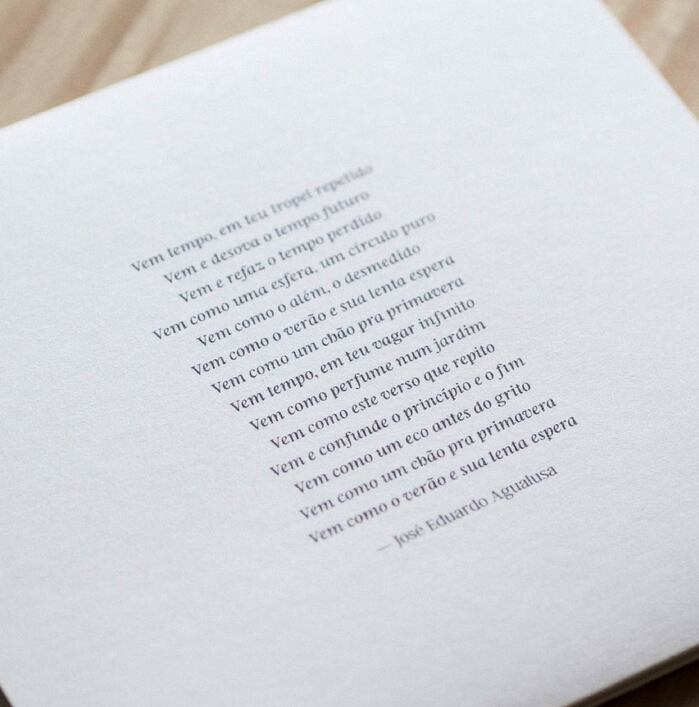 Vem tempo, em teu tropel repetido
Vem e desova o tempo futuro
Vem e refaz o tempo perdido
Vem como uma esfera, um círculo puro
Vem como o além, o desmedido
Vem como o verão e sua lenta espera
Vem como um chão pra primavera
Vem tempo, em teu vagar infinito
Vem como perfume num jardim
Vem como este verso que repito
Vem e confunde o princípio e o fim
Vem como um eco antes do grito
Vem como um chão pra primavera
Vem como o verão e sua lenta espera
— José Eduardo Agualusa